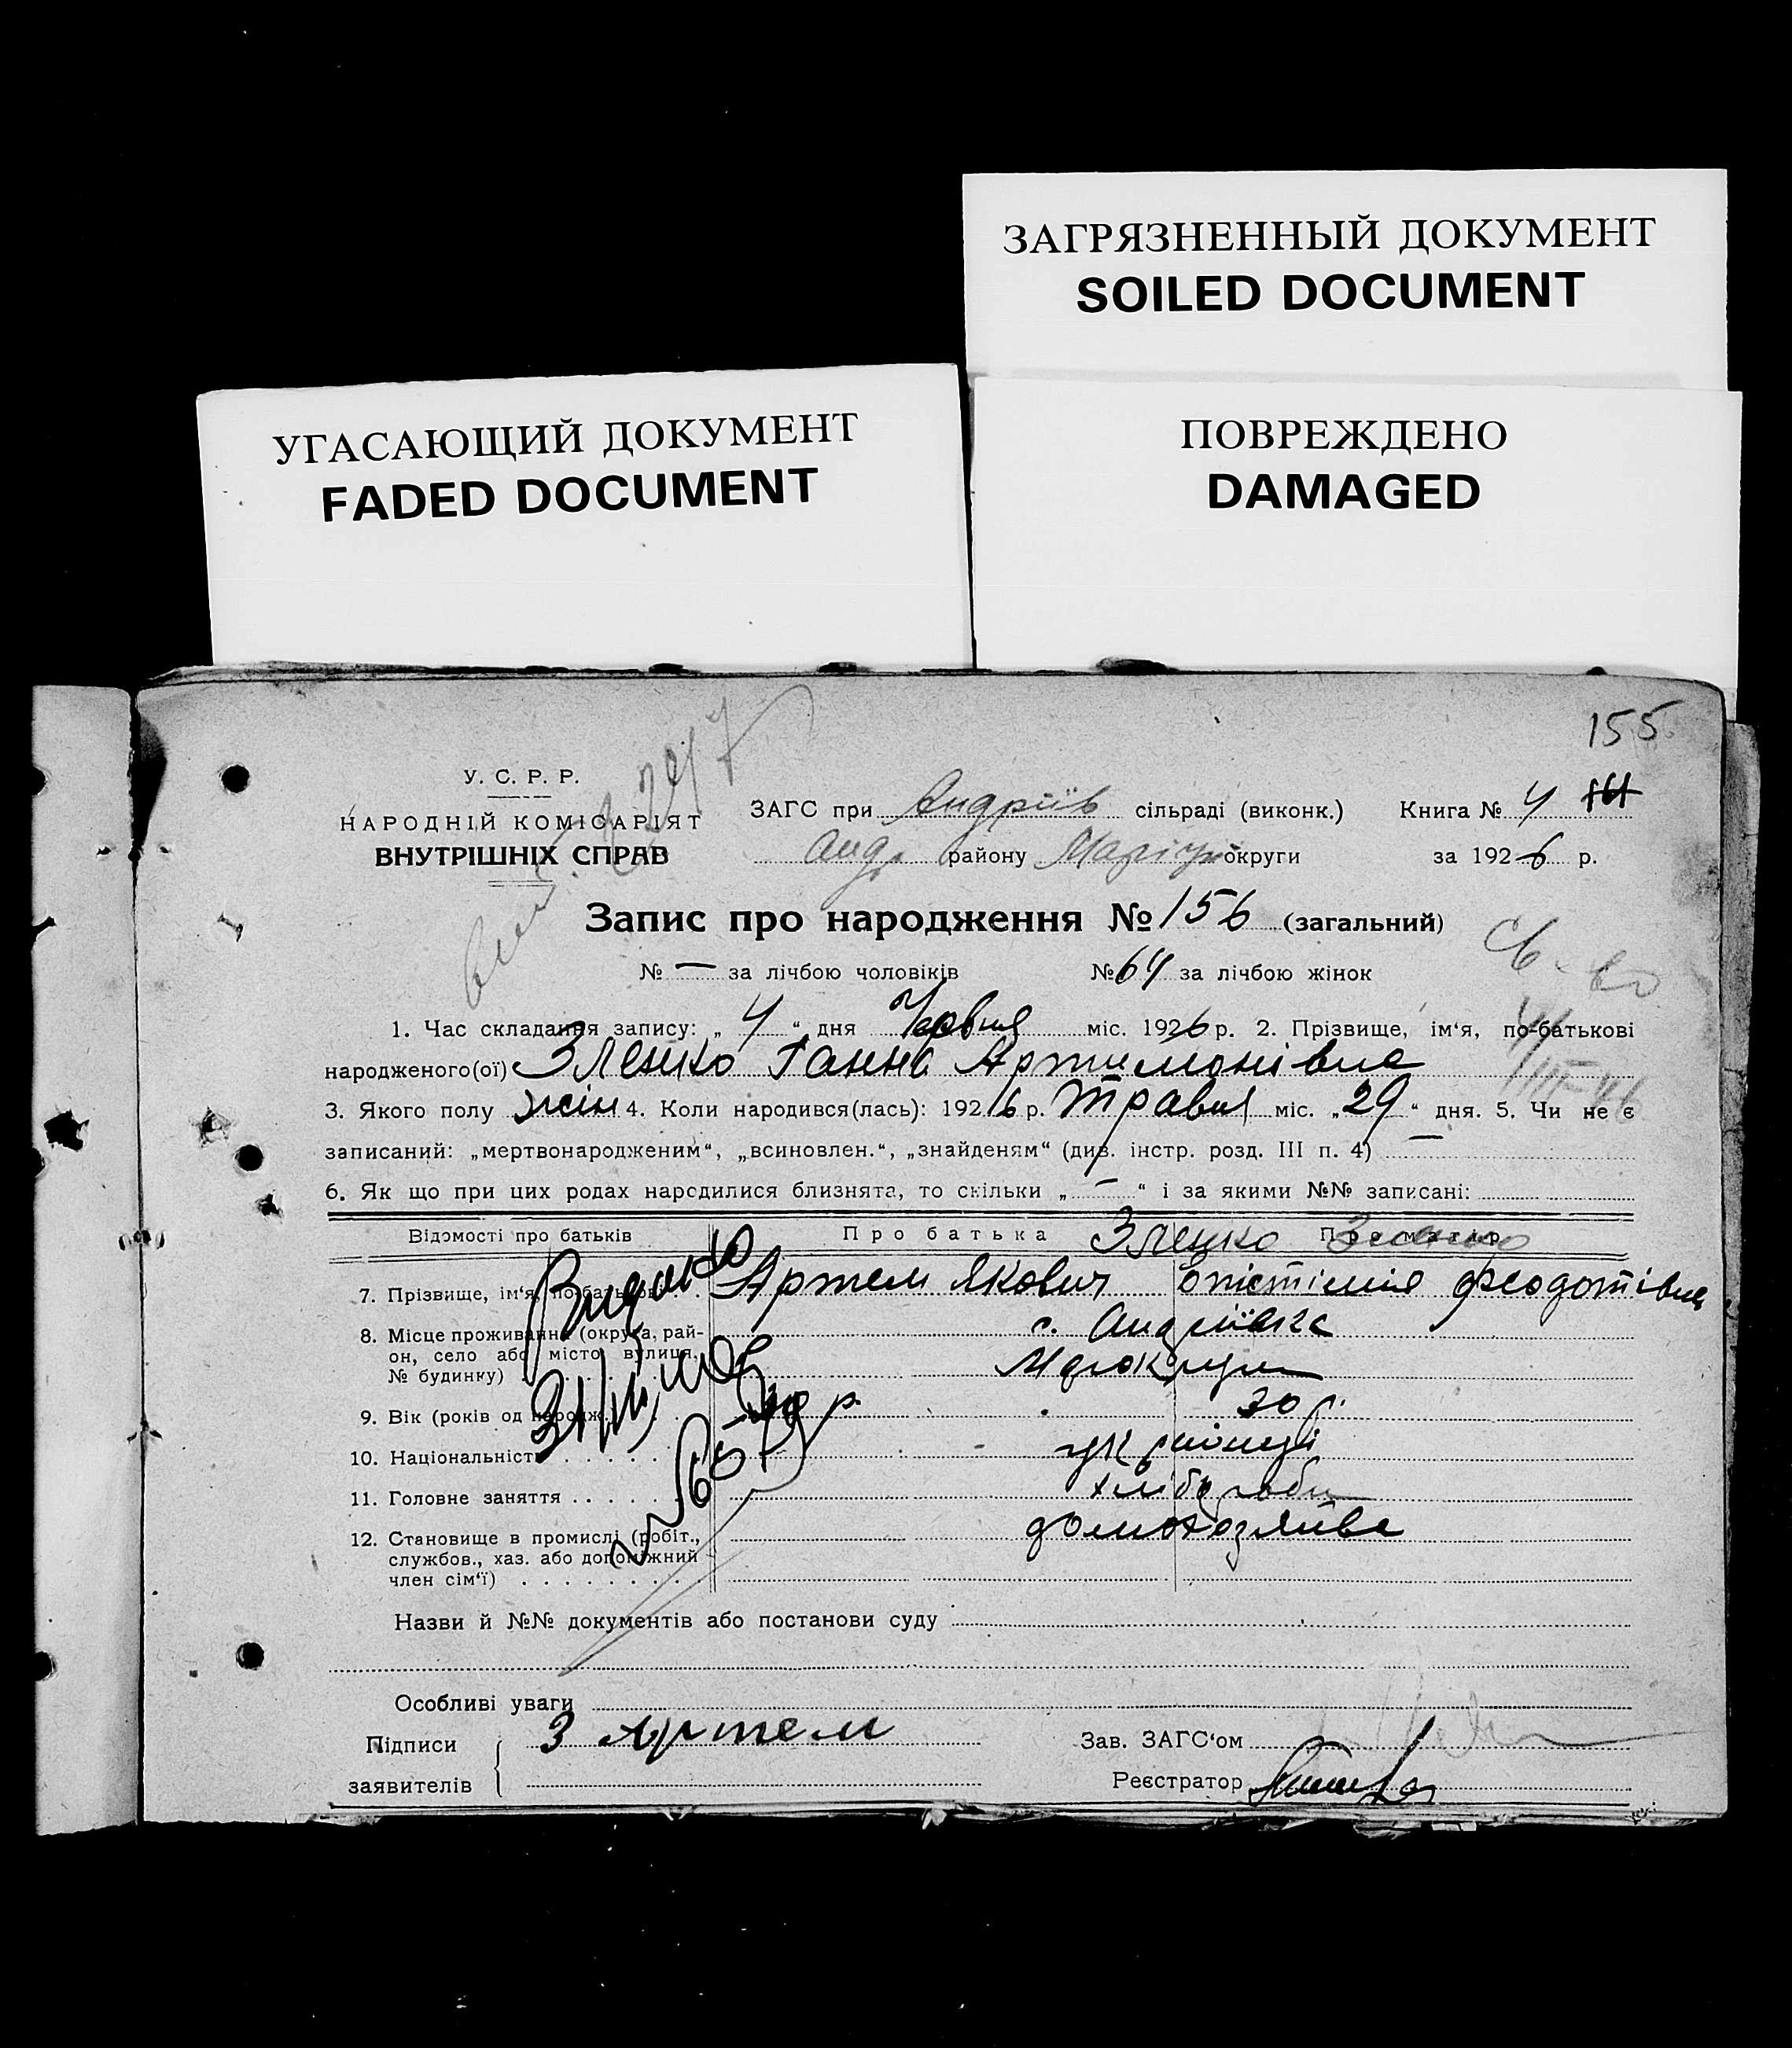 ЗАГРЯЗНЕННЫЙ ДОКУМЕНТ
SOILED DOCUMENT
УГАСАЮЩИЙ ДОКУМЕНТ
FADED DOCUMENT
ПОВРЕЖДЕНО
DAMAGED
155
У. С. Р. Р.
НАРОДНІЙ КОМІСАРІЯТ
ВНУТРІШНІХ СПРАВ
ЗАГС при Андріїв сільраді (виконк.) Книга № 4
Анд. району Маріуп округи за 1926 р.
Запис про народження № 156 (загальний)
№ — за лічбою чоловіків № 64 за лічбою жінок
1. Час складання запису: „ 4 “ дня Червня міс. 1926 р. 2. Прізвище, ім‘я, по-батькові
народженого(ої) Зленко Ганна Артимонівна
3. Якого полу жін 4. Коли народився(лась): 1926 р. Травня міс. „ 29 “ дня. 5. Чи не є
записаний: „мертвонародженим“, „всиновлен.“, „знайденям“ (див. інстр. розд. III п. 4) —
6. Як що при цих родах народилися близнята, то скільки „ — “ і за якими №№ записані:
Відомості про батьків Про батька Зленко Про матір
7. Прізвище, ім‘я, по-батькові Артем Якович Феодотівна
8. Місце проживання (округа, рай-
он, село або місто, вулиця, с. Андріївка
№ будинку)
9. Вік (років од народж.) р. 30 р.
10. Національність українці
11. Головне заняття хлібороби
12. Становище в промислі (робіт., домохозяйва
службов., хаз. або допоміжний
член сім‘ї)
Назви й №№ документів або постанови суду
Особливі уваги
Підписи З Артем Зав. ЗАГС‘ом
заявителів Реєстратор